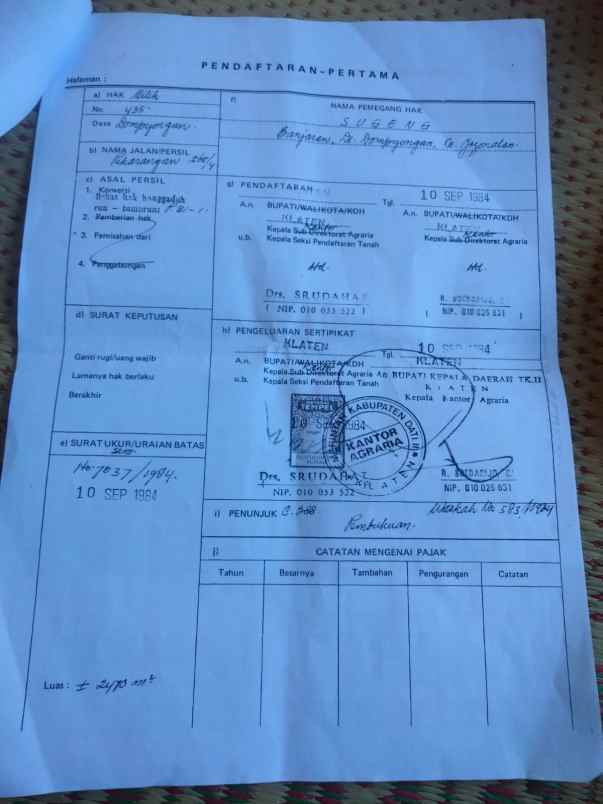 PENDAFTARAN-PERTAMA
Halaman :
a) HAK Milik
No. 435.
Desa Dompyongan.
b) NAMA JALAN/PERSIL
Pekarangan
c) ASAL PERSIL
1. Konversi
2. Pemberian hak
3. Pemisahan dari
4. Penggabungan
d) SURAT KEPUTUSAN
Ganti rugi/uang wajib
Lamanya hak berlaku
Berakhir
e) SURAT UKUR/URAIAN BATAS
No. 7037/1984.
10 SEP 1984
Luas : ± m²
f) NAMA PEMEGANG HAK
SUGENG
Banjaran, Ds. Dompyongan, Ce. Jogonalan.
g) PENDAFTARAN
Tgl. 10 SEP 1984
A.n. BUPATI/WALIKOTA/KDH
KLATEN
Kepala Sub Direktorat Agraria
u.b. Kepala Seksi Pendaftaran Tanah
ttd.
Drs. SRUDAHAT
( NIP. 010 053 522 )
A.n. BUPATI/WALIKOTA/KDH
KLATEN
Kepala Sub Direktorat Agraria
ttd.
( NIP. 010 025 651 )
h) PENGELUARAN SERTIPIKAT
KLATEN
Tgl. 10 SEP 1984
KLATEN
A.n. BUPATI/WALIKOTA/KDH
Kepala Sub Direktorat Agraria
u.b. Kepala Seksi Pendaftaran Tanah
An BUPATI KEPALA DAERAH TK.II
KLATEN
Kepala Kantor Agraria
10 SEP 1984
KABUPATEN DATI II
KANTOR
AGRARIA
KLATEN
Drs. SRUDAHAT
NIP. 010 053 522
NIP. 010 025 651
i) PENUNJUK
Pembukuan.
j) CATATAN MENGENAI PAJAK
Tahun Besarnya Tambahan Pengurangan Catatan